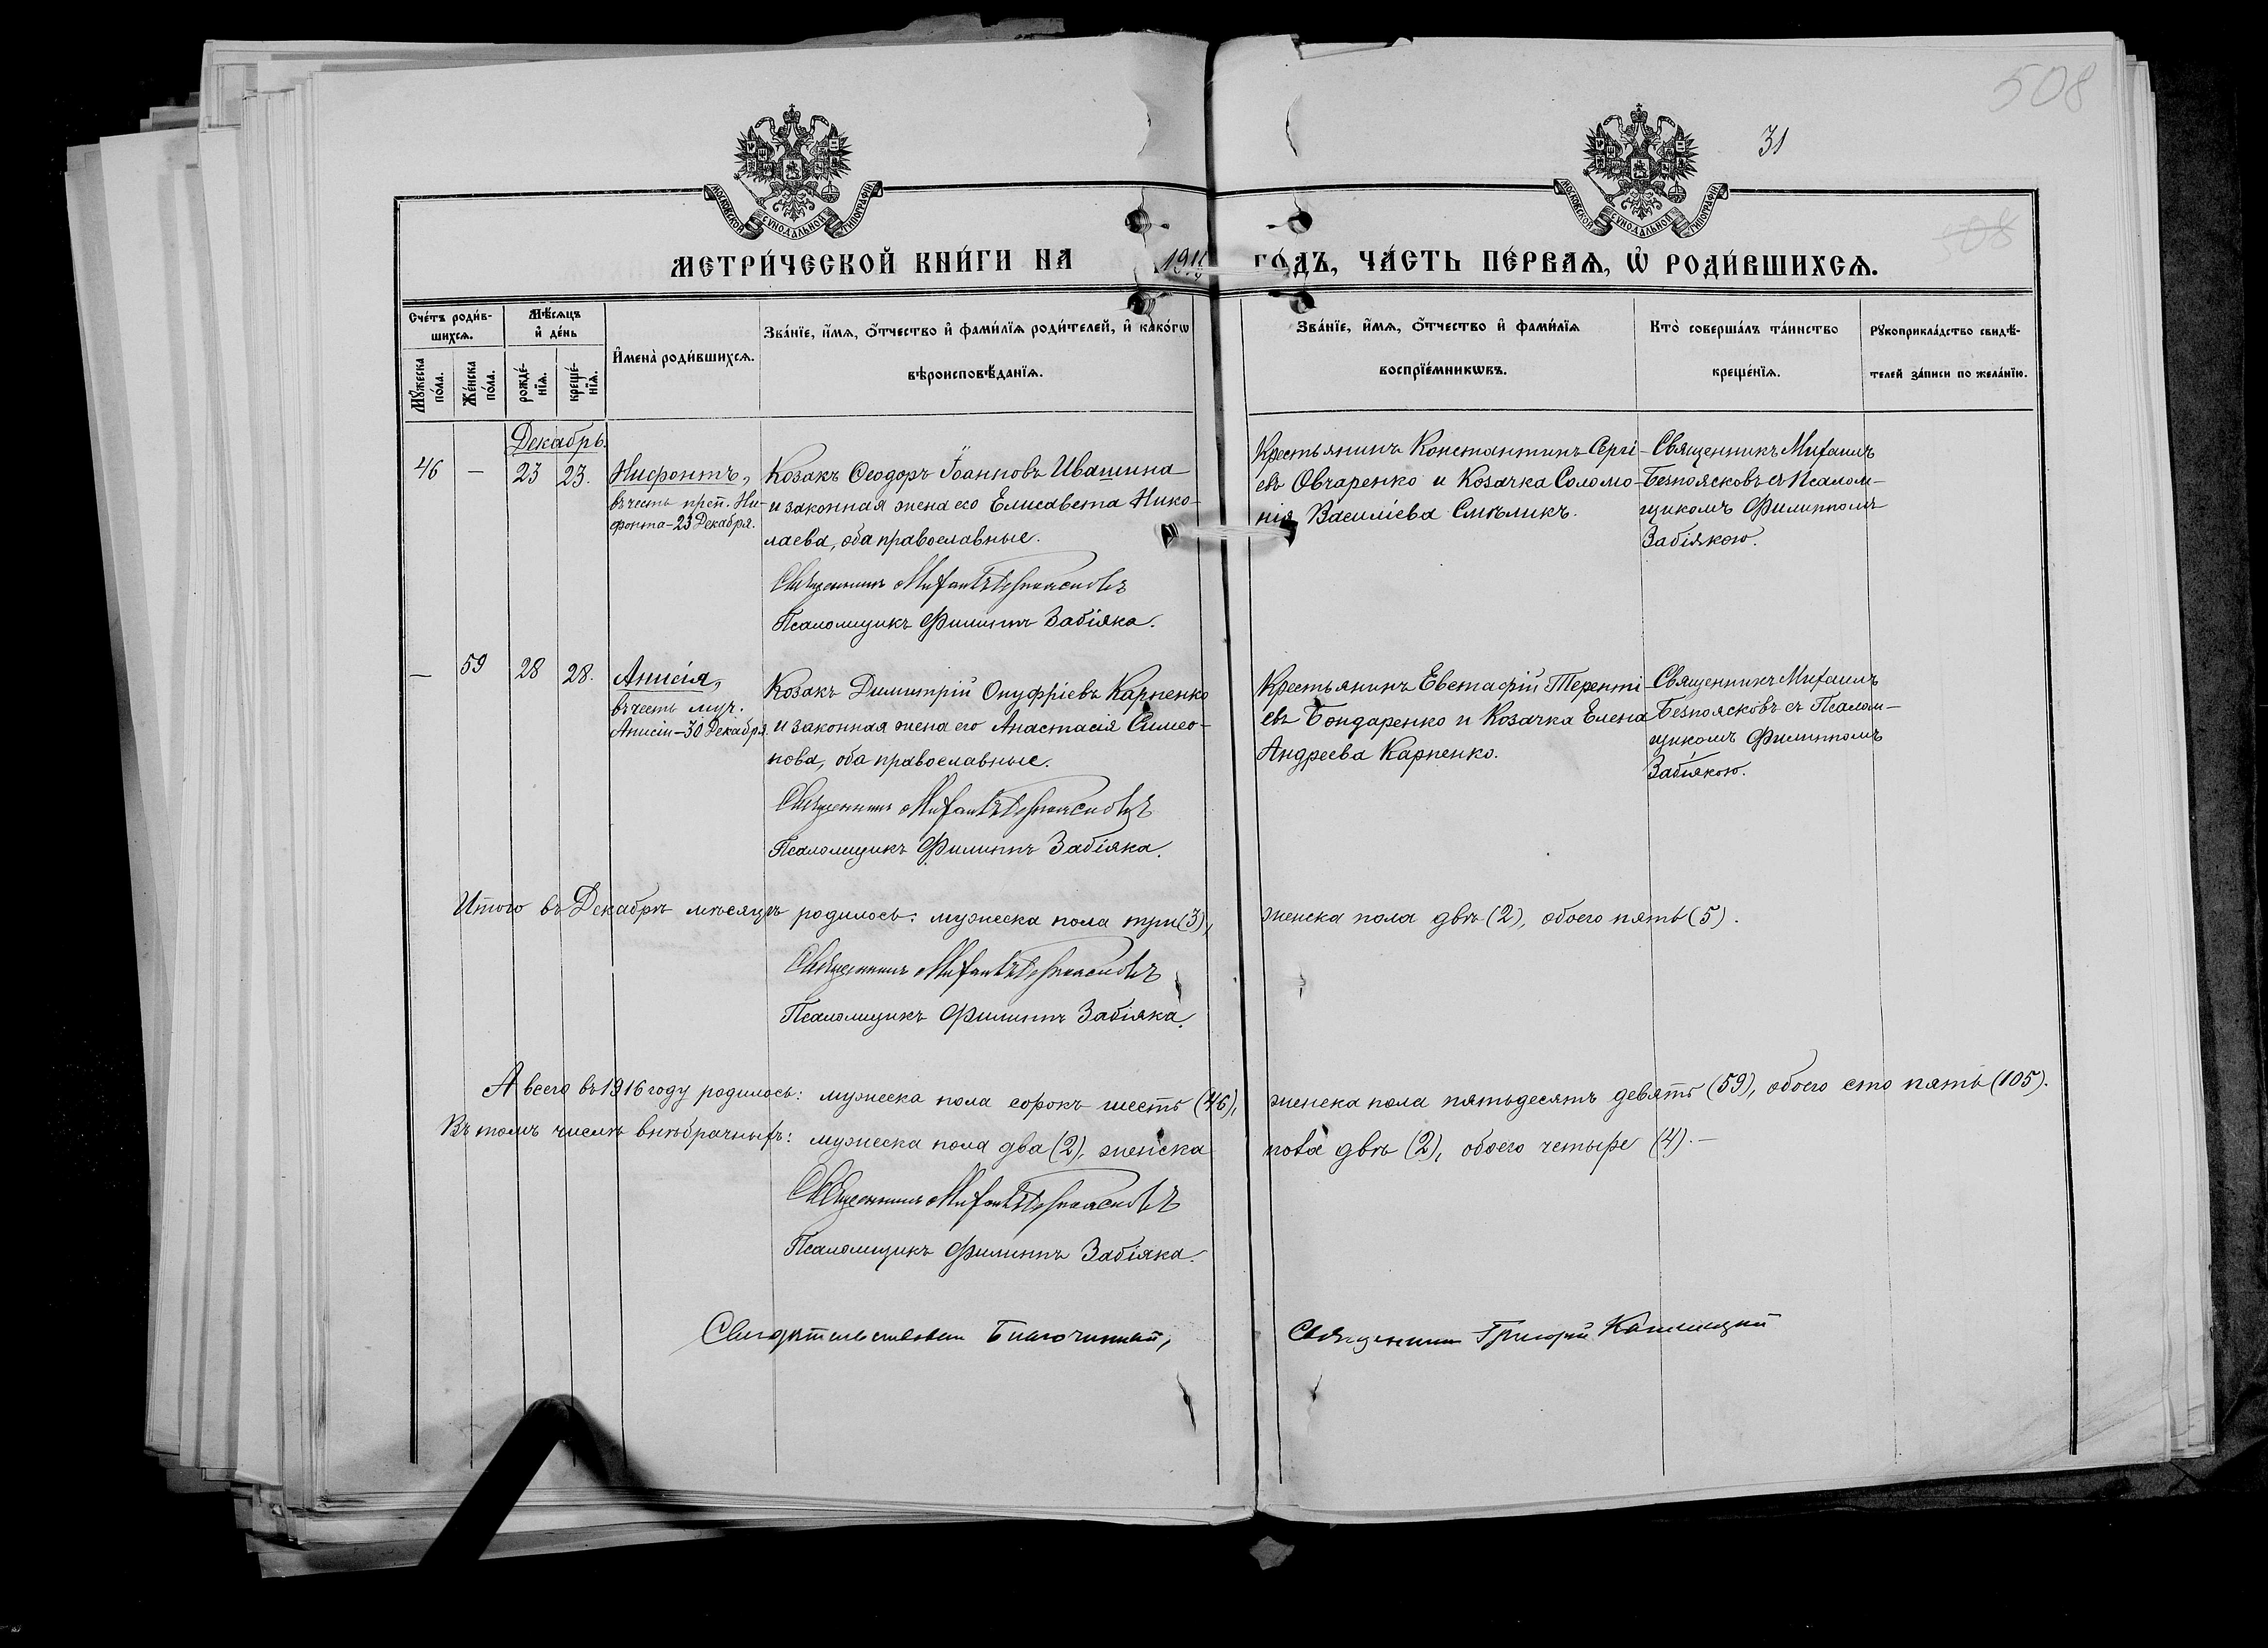 508
31
МОСКОВСКОЙ СѴНОДАЛЬНОЙ ТИПОГРАФІИ
МОСКОВСКОЙ СѴНОДАЛЬНОЙ ТИПОГРАФІИ
МЕТРИ́ЧЕСКОЙ КНИ́ГИ НА 1916 ГО́ДЪ, ЧА́СТЬ ПЕ́РВАѦ, Ѡ҆ РОДИ́ВШИХСѦ.
Сче́тъ роди́в-
шихсѧ.
Мꙋ́жеска по́ла.
Же́нска по́ла.
Мѣ́сѧцъ и҆ де́нь
рожде́-
нїѧ.
креще́-
нїѧ.
И҆мена̀ роди́вшихсѧ.
Зва́нїе, и҆́мѧ, ѻ҆́тчество и҆ фами́лїѧ роди́телей, и҆ како́гѡ
вѣроисповѣ́данїѧ.
Зва́нїе, и҆́мѧ, ѻ҆́тчество и҆ фами́лїѧ
воспрїе́мникѡвъ.
Кто̀ соверша́лъ та́инство
креще́нїѧ.
Рꙋкоприкла́дство свидѣ́-
телей за́писи по жела́нїю.
Декабрь.
46 — 23 23.
Нифонтъ,
въ честь преп. Ни-
фонта-23 Декабря.
Козакъ Ѳеодоръ Іоанновъ Ивашина
и законная жена его Елисавета Нико-
лаева, оба православные.
Священникъ Михаилъ Безпоясковъ
Псаломщикъ Филиппъ Забіяка.
Крестьянинъ Константинъ Сергі-
евъ Овчаренко и Козачка Соломо-
нія Василіева Смѣликъ.
Священникъ Михаилъ
Безпоясковъ съ Псалом-
щикомъ Филиппомъ
Забіякою.
— 59 28 28.
Анисія,
въ честь муч.
Анисіи-30 Декабря.
Козакъ Димитрій Онуфріевъ Карпенко
и законная жена его Анастасія Симео-
нова, оба православные.
Священникъ Михаилъ Безпоясковъ
Псаломщикъ Филиппъ Забіяка.
Крестьянинъ Евстафій Теренті-
евъ Бондаренко и Козачка Елена
Андреева Карпенко.
Священникъ Михаилъ
Безпоясковъ съ Псалом-
щикомъ Филиппомъ
Забіякою.
Итого въ Декабрѣ мѣсяцѣ родилось: мужеска пола три (3), женска пола двѣ (2), обоего пять (5).
Священникъ Михаилъ Безпоясковъ
Псаломщикъ Филиппъ Забіяка.
А всего въ 1916 году родилось: мужеска пола сорокъ шесть (46), женска пола пятьдесятъ девять (59), обоего сто пять (105).
Въ томъ числѣ внѣбрачныхъ: мужеска пола два (2), женска пола двѣ (2), обоего четыре (4).—
Священникъ Михаилъ Безпоясковъ
Псаломщикъ Филиппъ Забіяка.
Свидѣтельствовалъ Благочинный, Священникъ Григорій